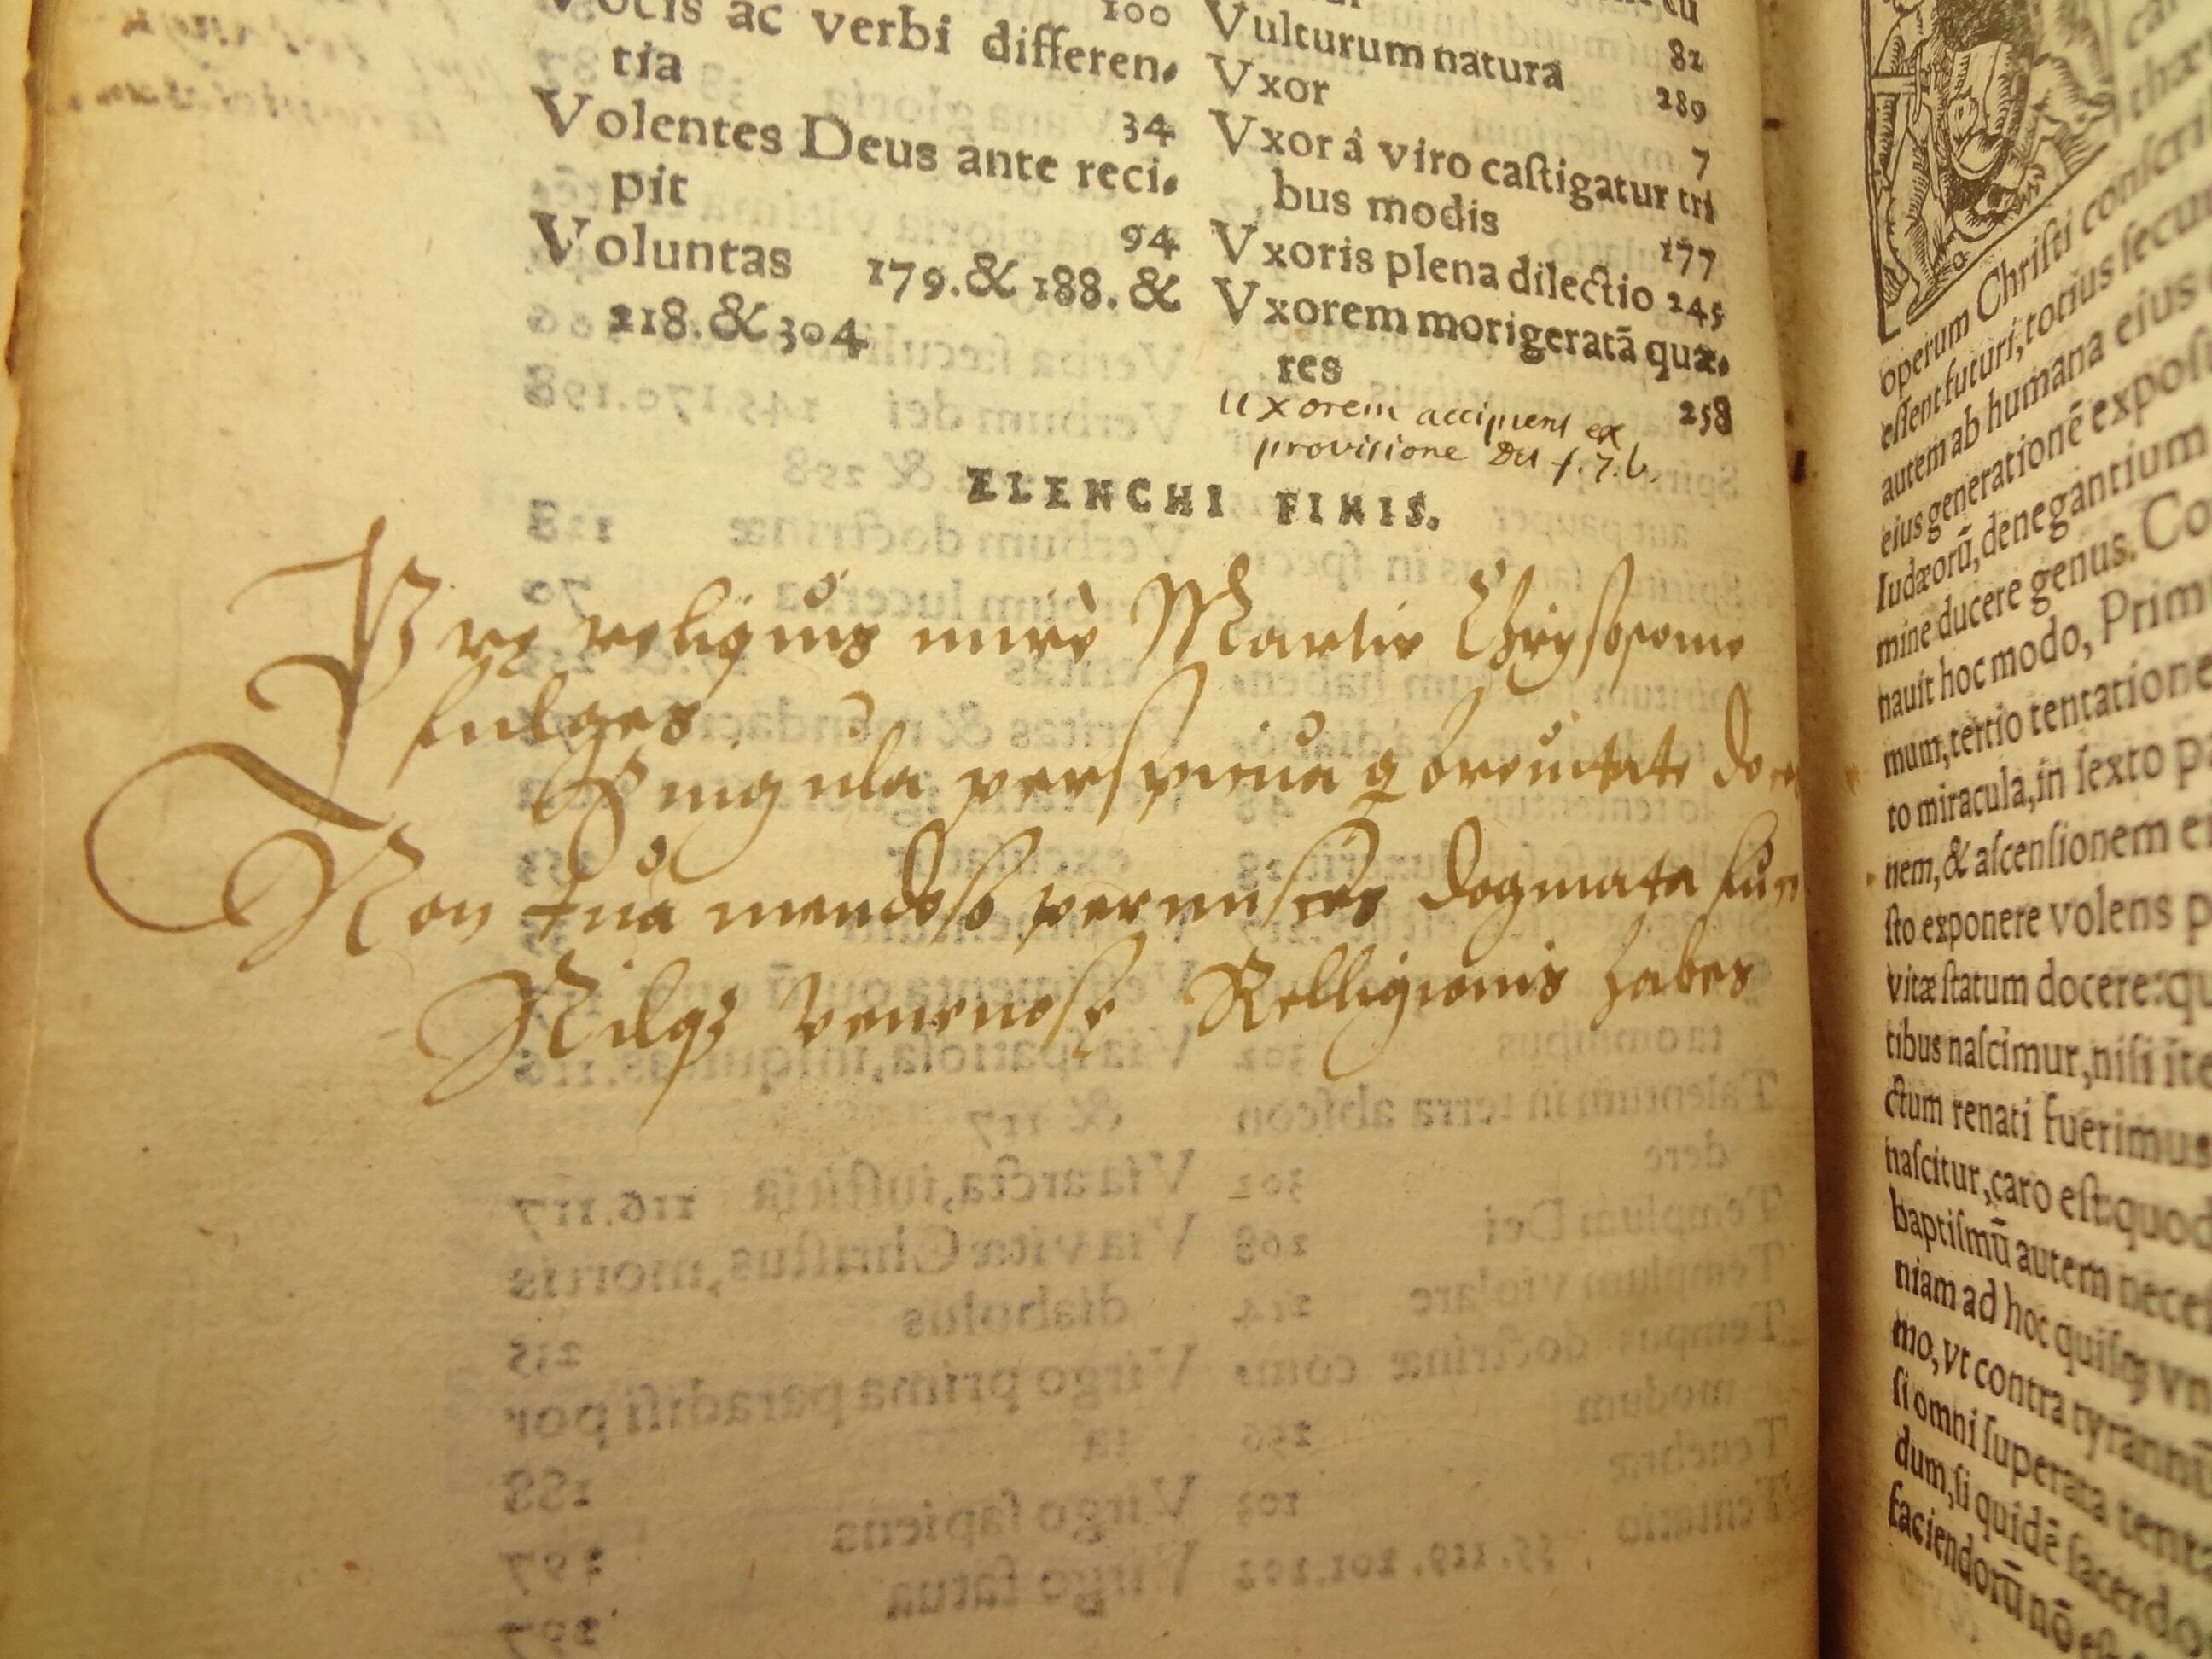 Vocis ac verbi differen-
tia
34
Volentes Deus ante reci-
pit
94
Voluntas 179.& 188. &
218.& 304
100
Vulturum natura
82
Vxor
289
7
Vxor â viro caſtigatur tri
bus modis
177
Vxoris plena dilectio 245
Vxorem morigeratā quæ-
res
258
Uxorem accipient ex
provisione Dei f. 7.b.
ELENCHI FINIS.
Pre reliquis mirè Martir Chrysostome
fulges
Singula perspicua q breuitate doc
Non tua mendoso permisces dogmata
Nilqз venenosę Relligionis habes
operum Chriſti conſcri
eſſent futuri, totius ſecu
autem ab humana eius
eius generationē expoſi
Iudæorū, denegantium
mine ducere genus. Co
nauit hoc modo, Prim
mum, tertio tentatione
to miracula, in ſexto p
nem, & aſcenſionem e
ſto exponere volens p
vitæ ſtatum docere: qu
tibus naſcimur, niſi ite
ctum renati fuerimus
naſcitur, caro eſt: quod
baptiſmū autem nece
niam ad hoc quiſq; vn
mo, vt contra tyrannū
ſi omni ſuperata tenta
dum, ſi quidē ſacerdo
faciendorū nō